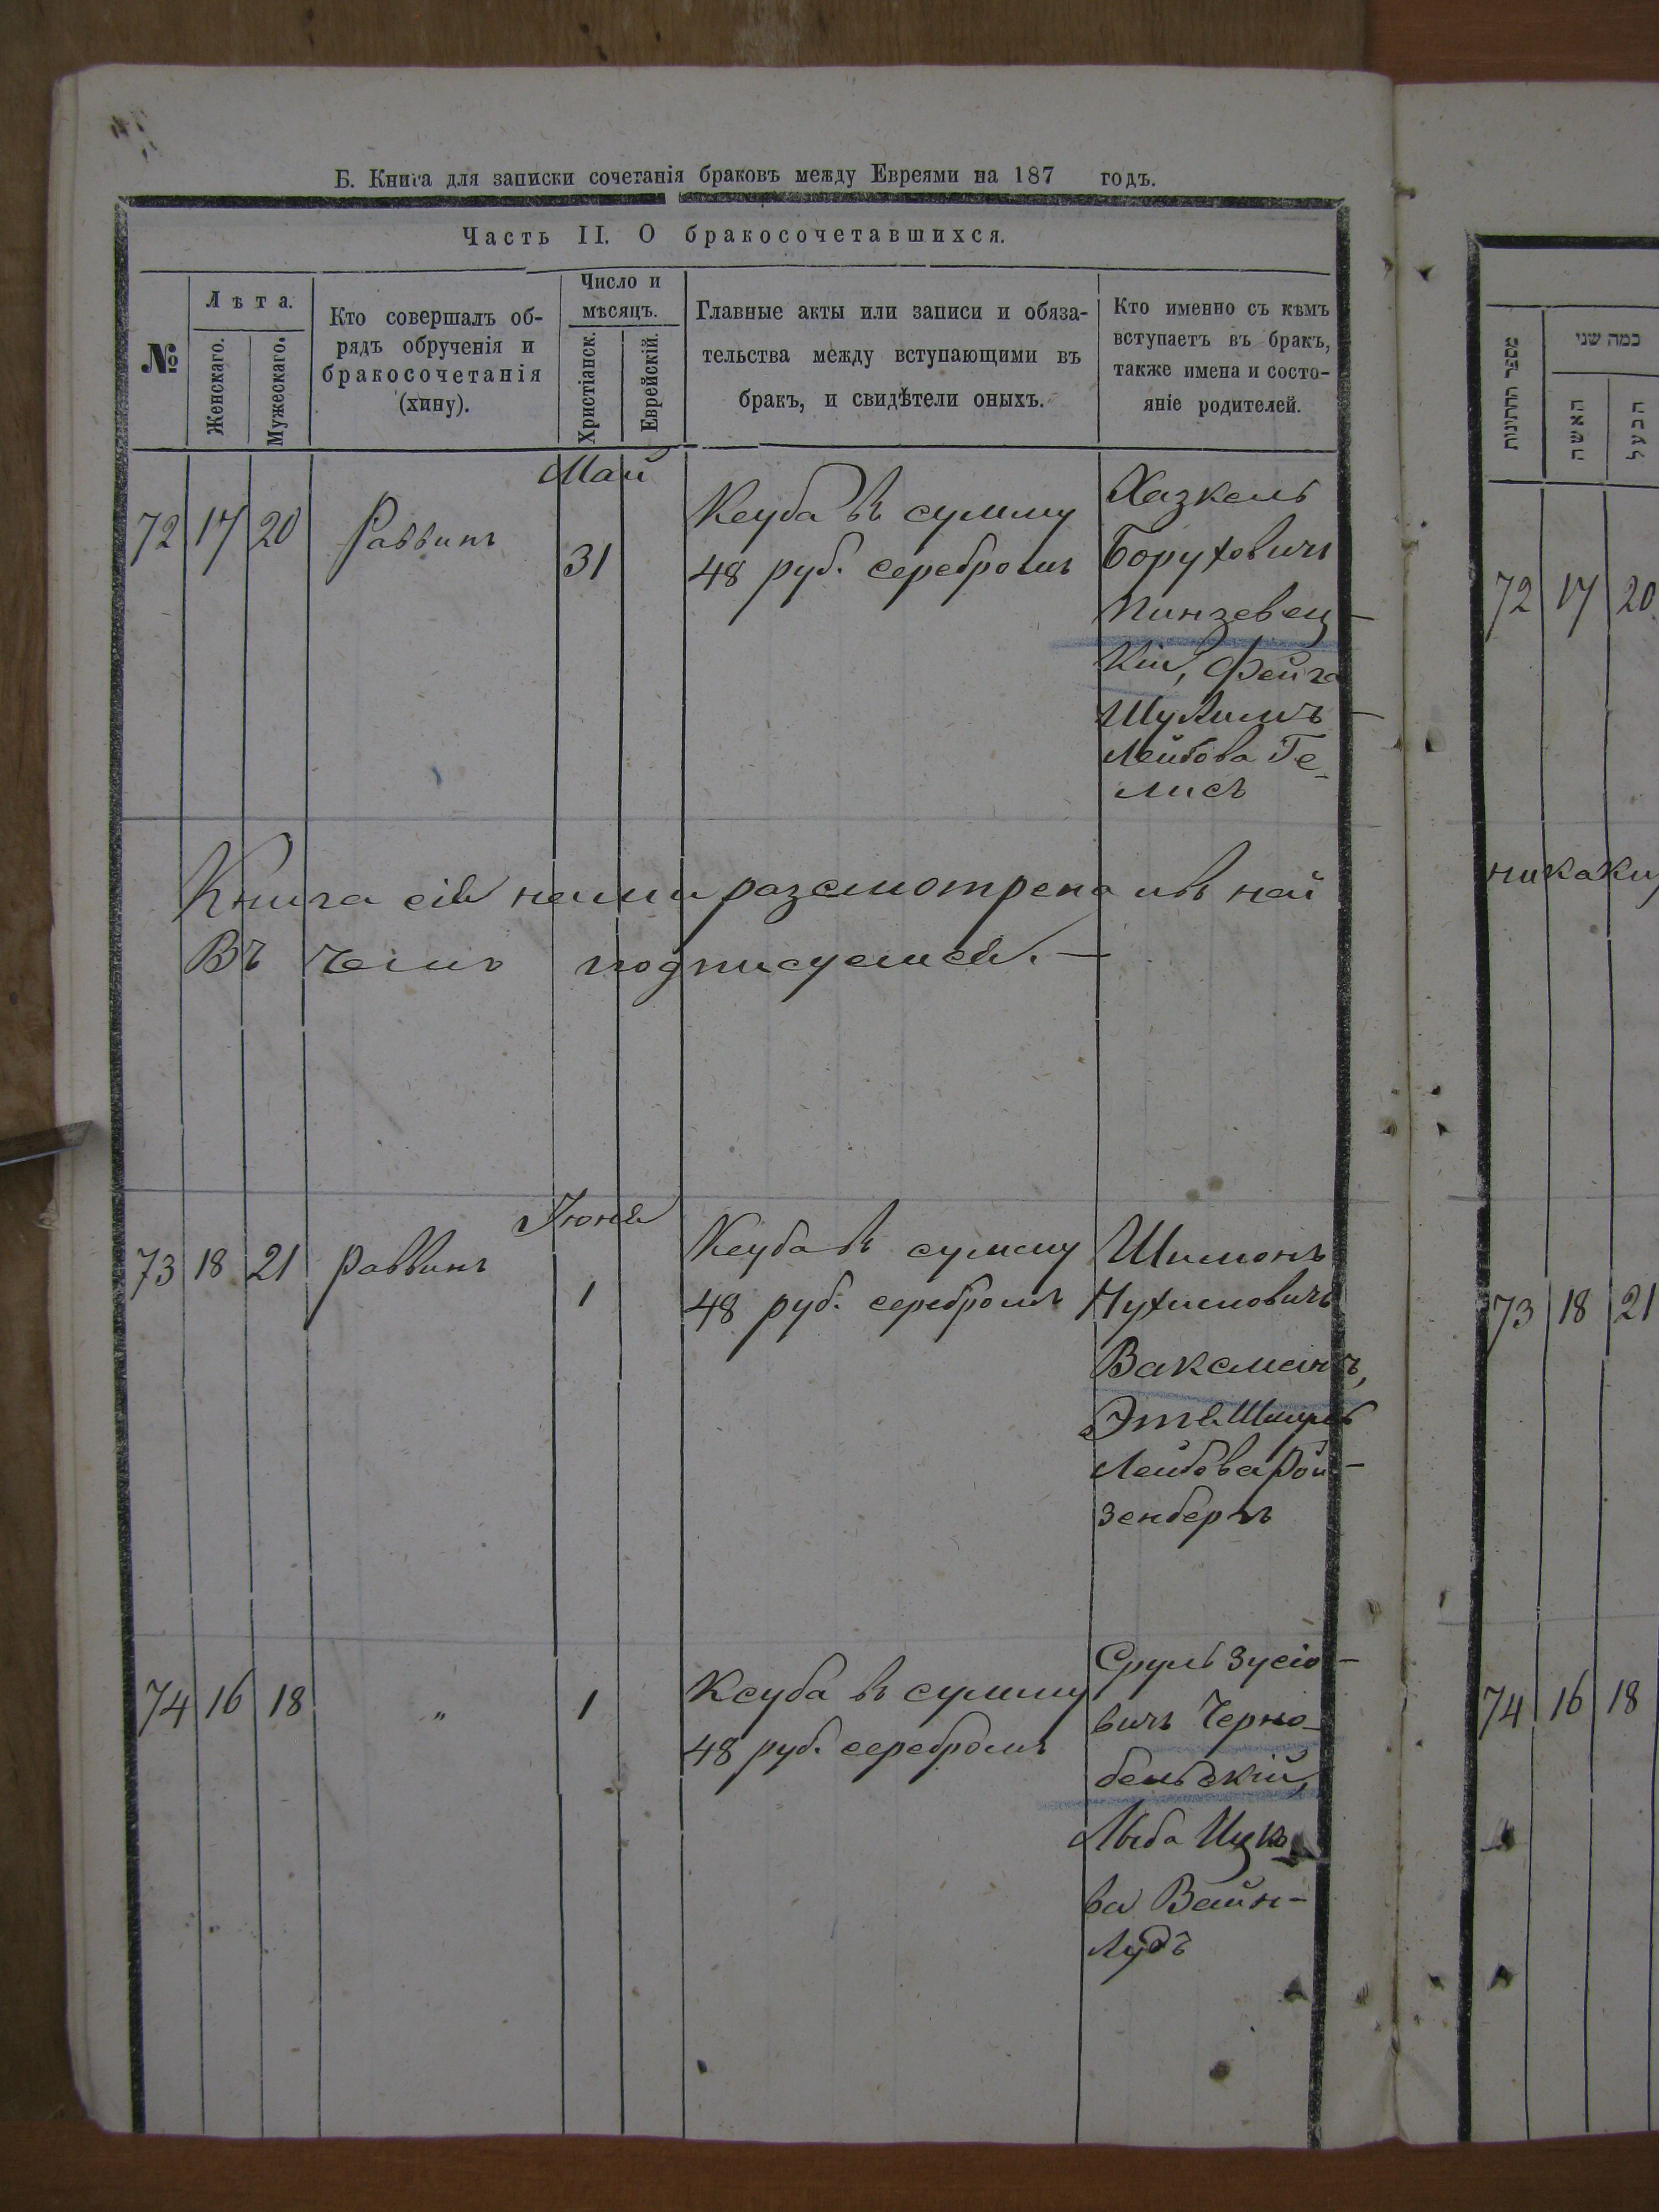 Б. Книга для записки сочетанія браковъ между Евреями на 187 годъ.
Часть II. О бракосочетавшихся.
№
Лѣта.
Женскаго.
Мужескаго.
Кто совершалъ об-
рядъ обрученія и
бракосочетанія
(хину).
Число и
мѣсяцъ.
Христіанск.
Еврейскій.
Главные акты или записи и обяза-
тельства между вступающими въ
бракъ, и свидѣтели оныхъ.
Кто именно съ кѣмъ
вступаетъ въ бракъ,
также имена и состо-
яніе родителей.
Май
72 17 20 Раввинъ 31
Ксуба въ сумму
48 руб. серебромъ
Хазкель
Боруховичъ
Пинзевец-
кій, Фейга
Шулимъ-
Лейбова Ге-
лисъ
Книга сія нами разсмотрена и въ ней
Въ чемъ подписуемся.—
Іюня
73 18 21 Раввинъ 1
Ксуба въ сумму
48 руб. серебромъ
Шимонъ
Нухимовичъ
Ваксманъ,
Этя
Лейбова Рой-
зенбергъ
74 16 18 " 1
Ксуба въ сумму
48 руб. серебромъ
Сруль Зусіо-
вичъ Черно-
бельскій,
Лыба Ицко
ва Вайн-
Лудъ
מספר החתונות
כמה שני
האשה
הבעל
72 17 20
никаки
73 18 21
74 16 18